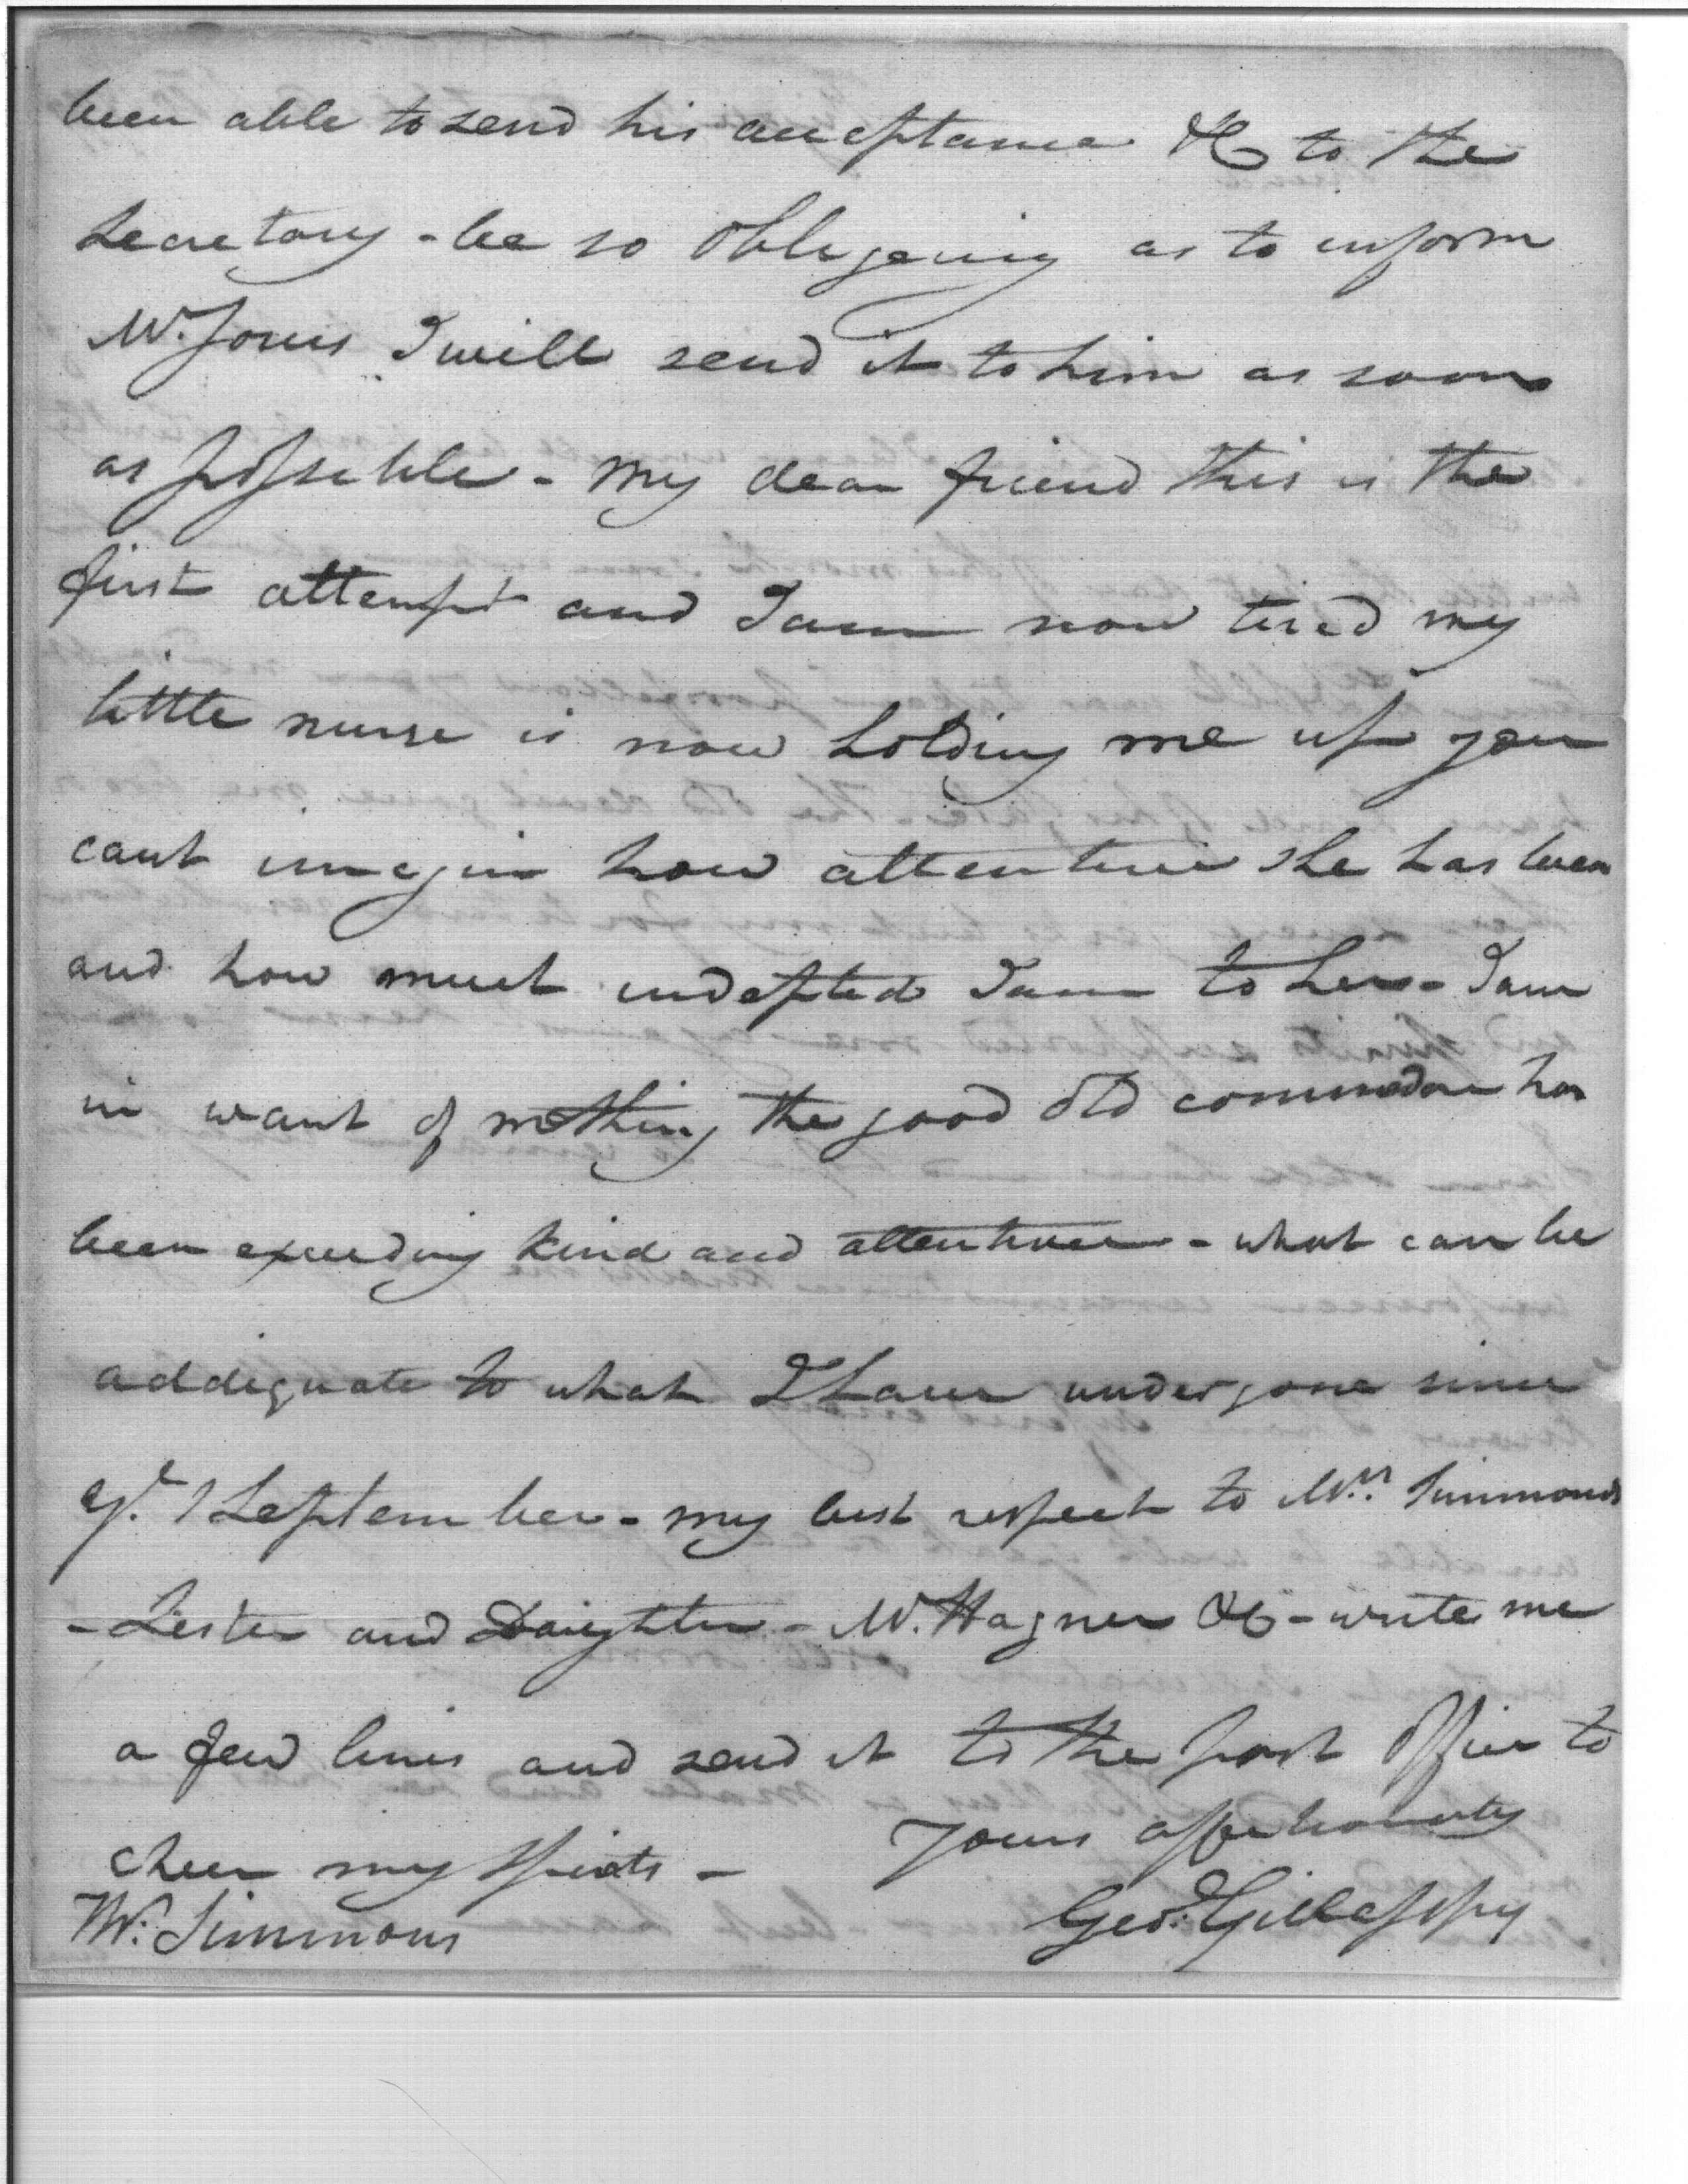 been able to send his acceptance &c to the
Secretary - be so obligeing as to inform
Mr. Jones I will send it to him as soon
as possible - my dear friend this is the
first attempt and I am now tired my
little nurse is now holding me up you
cant imagin how attentive she has been
and how much indepted I am to her - I am
in want of nothing the good old commodore has
been exceeding kind and attentive - what can be
addiquate to what I have undergone since
ye. 1 September - my best respect to Mrs. Simmonds
- Sester and Daughter - Mr. Hagner &c - write me
a few lines and send it to the post office to
cheer my spirits - Yours affectionately
Wm. Simmons Geo: Gillasspy